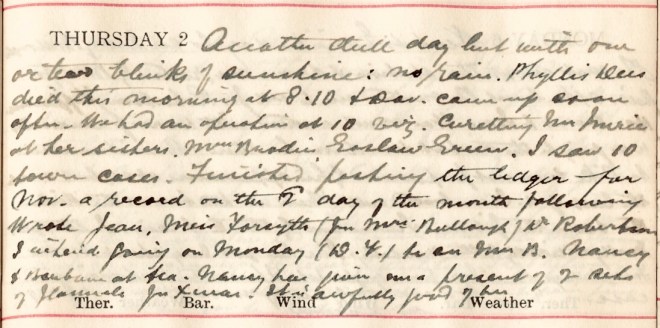 THURSDAY 2 Another dull day but with one
or two blinks of sunshine: no rain. Phyllis
died this morning at 8.10 & Dav. came up soon
after. We had an operation at 10 viz. Curetting Mrs
at her sisters, Mrs Green. I saw 10
town cases. Finished posting the ledger for
Nov. a record on the 2 day of the month following
Wrote Jean, Miss Forsyth (for Mrs Bullough) Dr Robertson
I intend going on Monday (D.V.) to see Mrs B. Nancy
& Barbara at tea. Nancy has given me a present of 2 sets
of flannels for Xmas. It is awfully good of her
Ther. Bar. Wind Weather